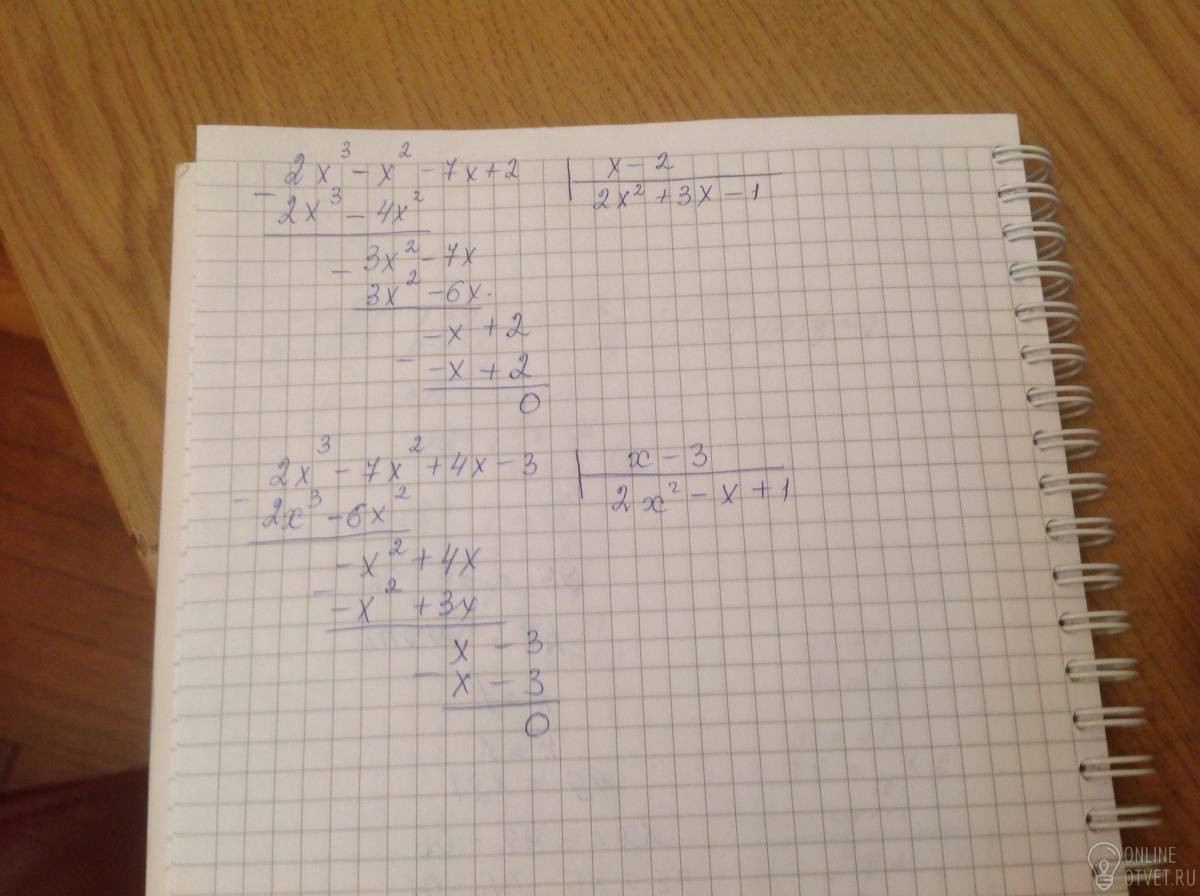 2x³ - x² - 7x + 2 | x - 2
- 2x³ - 4x² | 2x² + 3x - 1
- 3x² - 7x
3x² - 6x
-x + 2
- -x + 2
0
2x³ - 7x² + 4x - 3 | x - 3
- 2x³ - 6x² | 2x² - x + 1
-x² + 4x
- -x² + 3x
x - 3
- x - 3
0
ONLINE
OTVET.RU